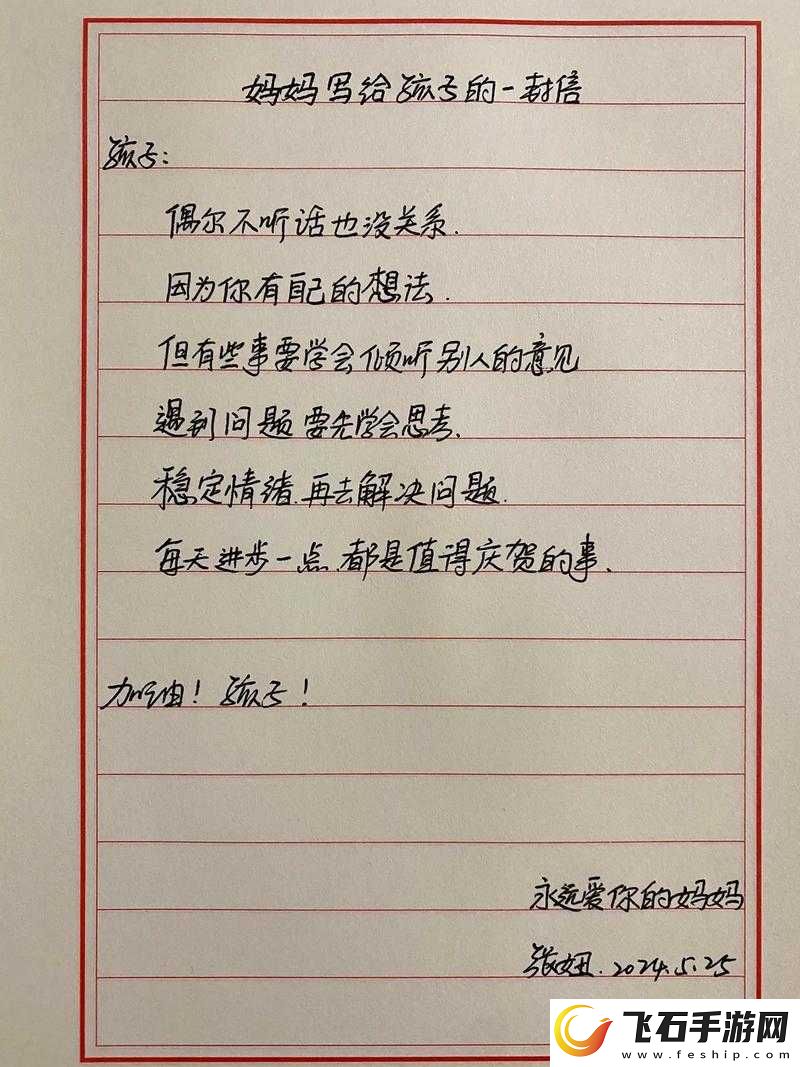 妈妈写给孩子的一封信
孩子：
偶尔不听话也没关系.
因为你有自己的想法.
但有些事要学会倾听别人的意见
遇到问题要先学会思考.
稳定情绪.再去解决问题.
每天进步一点.都是值得庆贺的事.
加油！孩子！
永远爱你的妈妈
张妞.2024.5.25
飞石手游网
www.feship.com